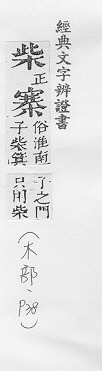 經典文字辨證書
柴正
寨俗淮南
子柴箕
子之門
只用柴
(木部、P28)